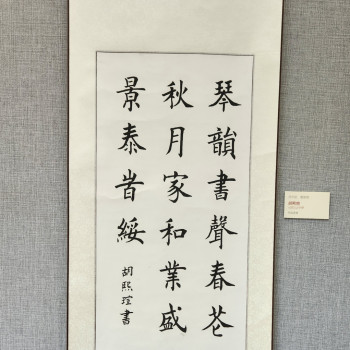 琴韻書聲春花
秋月家和業盛
景泰旹綏
胡熙瑄書